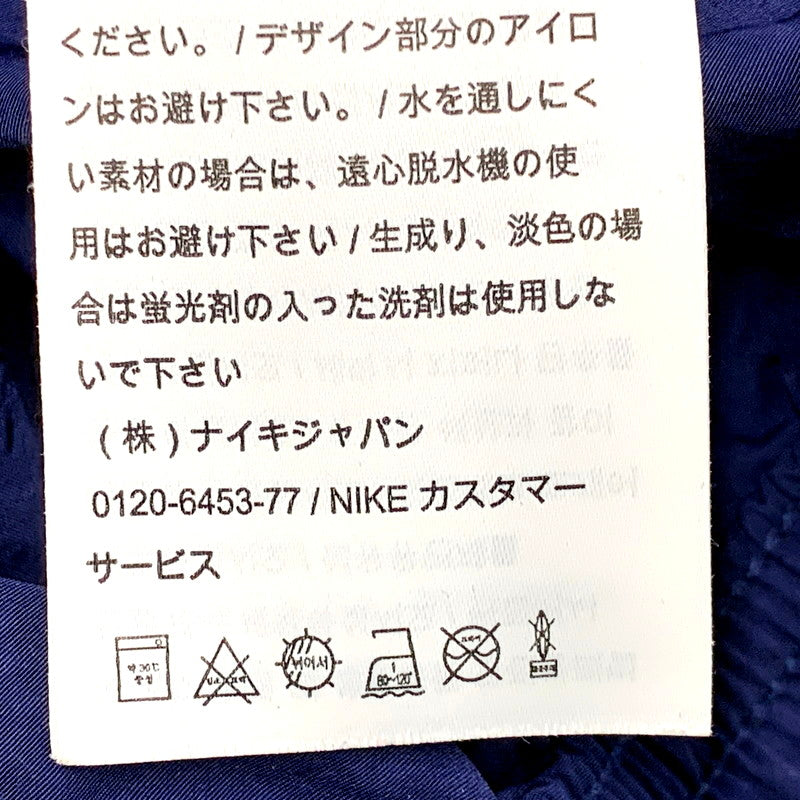 ください。/ デザイン部分のアイロ
ンはお避け下さい。/ 水を通しにく
い素材の場合は、遠心脱水機の使
用はお避け下さい / 生成り、淡色の場
合は蛍光剤の入った洗剤は使用しな
いで下さい
(株)ナイキジャパン
0120-6453-77 / NIKE カスタマー
サービス
약 30℃
중성
뉘어서
1
80~120℃
드라이